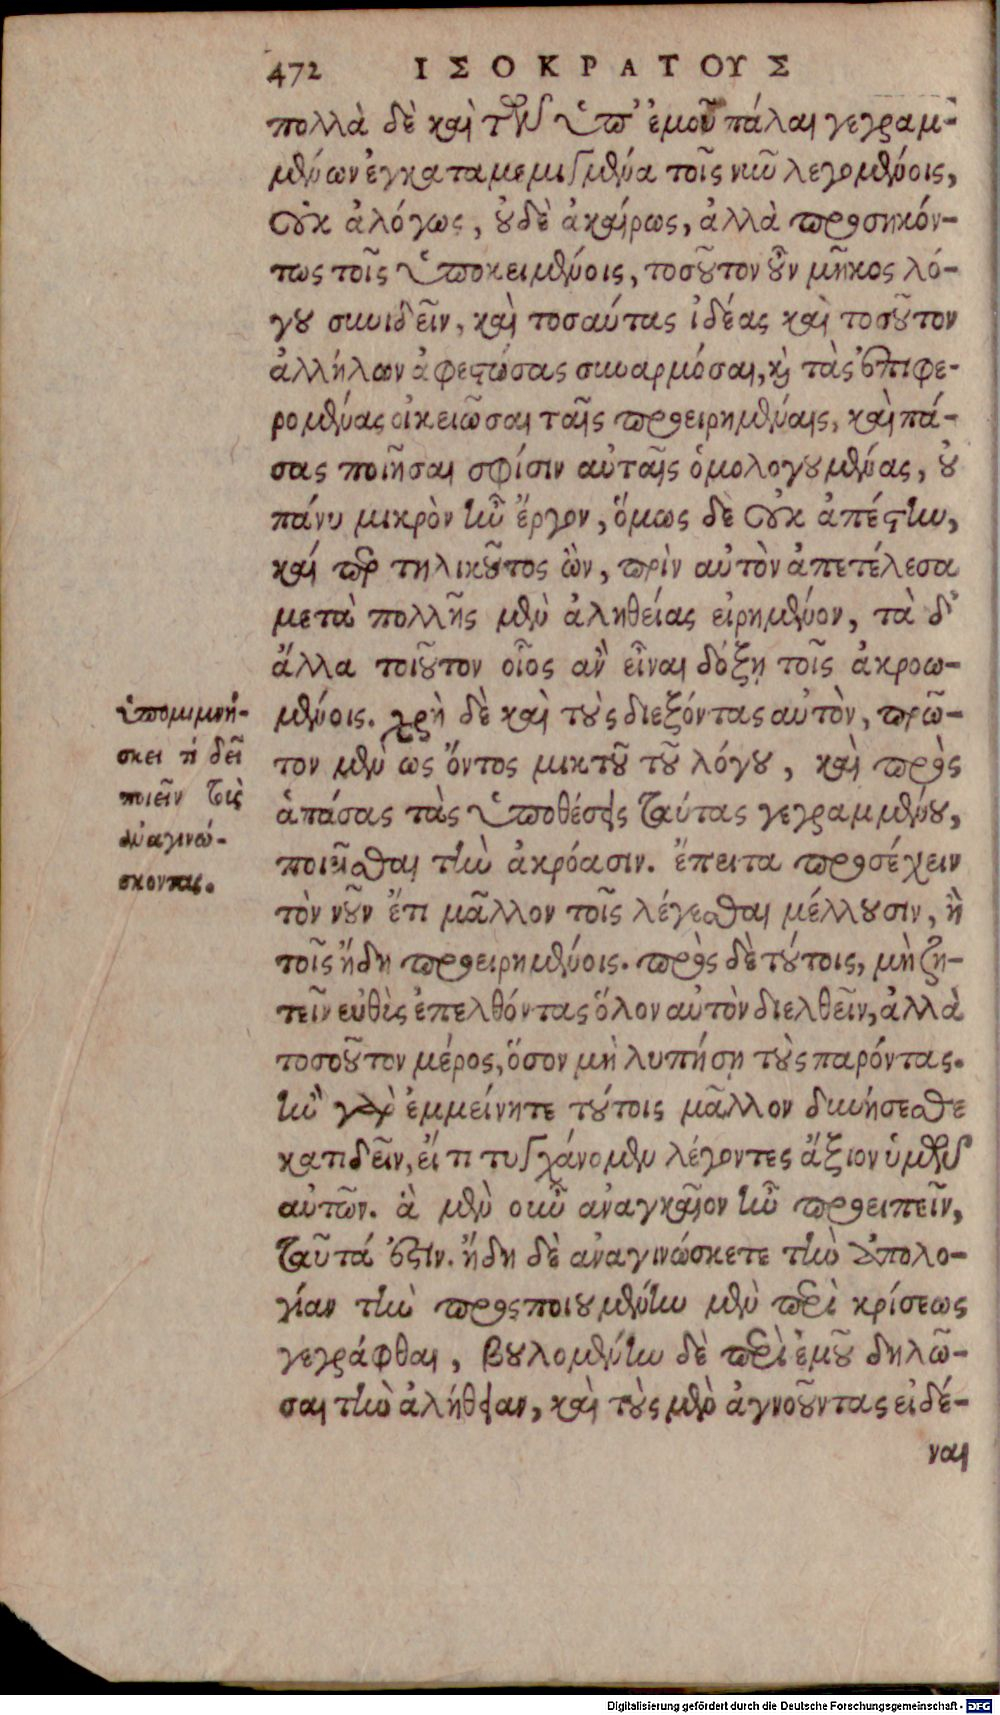 472 ΙΣΟΚΡΑΤΟΥΣ
πολλὰ δὲ καὶ τῶν ὑπ' ἐμοῦ πάλαι γεγραμ-
μένων ἐγκαταμεμιγμένα τοῖς νῦν λεγομένοις,
οὐκ ἀλόγως, οὐδὲ ἀκαίρως, ἀλλὰ προσηκόν-
τως τοῖς ὑποκειμένοις, τοσοῦτον οὖν μῆκος λό-
γου συνιδεῖν, καὶ τοσαύτας ἰδέας καὶ τοσοῦτον
ἀλλήλων ἀφεστώσας συναρμόσαι, καὶ τὰς ἐπιφε-
ρομένας οἰκειῶσαι ταῖς προειρημέναις, καὶ πά-
σας ποιῆσαι σφίσιν αὐταῖς ὁμολογουμένας, οὐ
πάνυ μικρὸν ἦν ἔργον, ὅμως δὲ οὐκ ἀπέστην,
καί περ τηλικοῦτος ὢν, πρὶν αὐτὸν ἀπετέλεσα
μετὰ πολλῆς μὲν ἀληθείας εἰρημένον, τὰ δ'
ἄλλα τοιοῦτον οἷος ἂν εἶναι δόξῃ τοῖς ἀκροω-
μένοις. χρὴ δὲ καὶ τοὺς διεξόντας αὐτὸν, πρῶ-
τον μὲν ὡς ὄντος μικτοῦ τοῦ λόγου, καὶ πρὸς
ἁπάσας τὰς ὑποθέσεις ταύτας γεγραμμένου,
ποιεῖσθαι τὴν ἀκρόασιν. ἔπειτα προσέχειν
τὸν νοῦν ἔτι μᾶλλον τοῖς λέγεσθαι μέλλουσιν, ἢ
τοῖς ἤδη προειρημένοις. πρὸς δὲ τούτοις, μὴ ζη-
τεῖν εὐθὺς ἐπελθόντας ὅλον αὐτὸν διελθεῖν, ἀλλὰ
τοσοῦτον μέρος, ὅσον μὴ λυπήσῃ τοὺς παρόντας.
ἢν γὰρ ἐμμείνητε τούτοις μᾶλλον δυνήσεσθε
κατιδεῖν, εἴ τι τυγχάνομεν λέγοντες ἄξιον ὑμῶν
αὐτῶν. ἃ μὲν οὖν ἀναγκαῖον ἦν προειπεῖν,
ταῦτά ἐστιν. ἤδη δὲ ἀναγινώσκετε τὴν ἀπολο-
γίαν τὴν προςποιουμένην μὲν περὶ κρίσεως
γεγράφθαι, βουλομένην δὲ περὶ ἐμοῦ δηλῶ-
σαι τὴν ἀλήθειαν, καὶ τοὺς μὲν ἀγνοοῦντας εἰδέ-
ναι
ὑπομιμνή-
σκει τί δεῖ
ποιεῖν τοὺς
ἀναγινώ-
σκοντας.
Digitalisierung gefördert durch die Deutsche Forschungsgemeinschaft - DFG